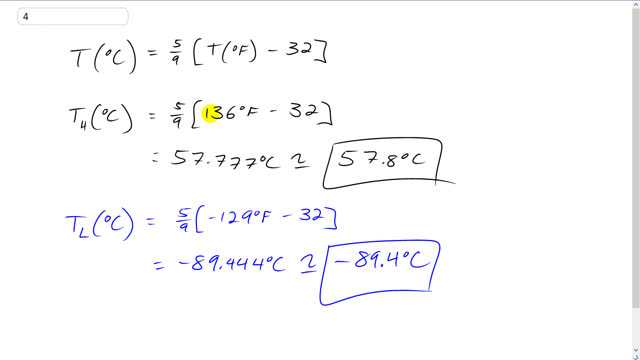 4
T(°C) = 5/9 [T(°F) - 32]
T4(°C) = 5/9 [136°F - 32]
= 57.777°C ≃ 57.8°C
TL(°C) = 5/9 [-129°F - 32]
= -89.444°C ≃ -89.4°C